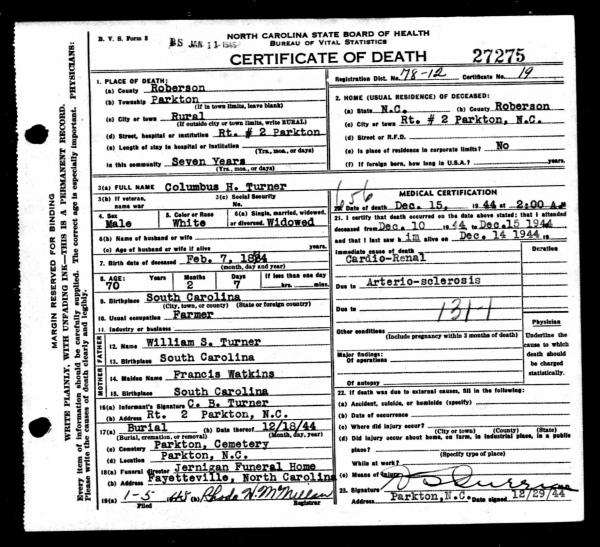 B. V. S. Form 8
BS JAN 11 1945
NORTH CAROLINA STATE BOARD OF HEALTH
BUREAU OF VITAL STATISTICS
CERTIFICATE OF DEATH
27275
Registration Dist. No. 78-12 Certificate No. 19
MARGIN RESERVED FOR BINDING
WRITE PLAINLY, WITH UNFADING INK—THIS IS A PERMANENT RECORD.
Every item of information should be carefully supplied. The correct age is especially important. PHYSICIANS:
Please write the causes of death clearly and legibly.
1. PLACE OF DEATH:
(a) County Roberson
(b) Township Parkton
(If in town limits, leave blank)
(c) City or town Rural
(If outside city or town limits, write RURAL)
(d) Street, hospital or institution Rt. # 2 Parkton
(e) Length of stay in hospital or institution
(Yrs., mos., or days)
In this community Seven Years
(Yrs., mos., or days)
2. HOME (USUAL RESIDENCE) OF DECEASED:
(a) State N.C. (b) County Roberson
(c) City or town Rt. # 2 Parkton, N.C.
(d) Street or R.F.D.
(e) Is place of residence in corporate limits? No
(f) If foreign born, how long in U.S.A.? years.
3(a) FULL NAME Columbus H. Turner
3(b) If veteran, name war
3(c) Social Security No.
4. Sex Male
5. Color or Race White
6(a) Single, married, widowed, or divorced. Widowed
6(b) Name of husband or wife
(c) Age of husband or wife if alive years.
7. Birth date of deceased Feb. 7, 1884
(month, day and year)
8. AGE: Years Months Days If less than one day
70 2 7 hrs. mins.
9. Birthplace South Carolina
(City, town, or county) (State or foreign country)
10. Usual occupation Farmer
11. Industry or business
FATHER
12. Name William S. Turner
13. Birthplace South Carolina
MOTHER
14. Maiden Name Francis Watkins
15. Birthplace South Carolina
16(a) Informant's Signature C. B. Turner
(b) Address Rt. 2 Parkton, N.C.
17(a) Burial (b) Date thereof 12/18/44
(Burial, cremation, or removal) (Month, day, year)
(c) Cemetery Parkton, Cemetery
(d) Location Parkton, N.C.
18(a) Funeral director Jernigan Funeral Home
(b) Address Fayetteville, North Carolina
19(a) 1-5 45 (b) Rhoda H. McMillan
Filed Registrar
656
MEDICAL CERTIFICATION
20. Date of death Dec. 15, 1944 at 2:00 A.
21. I certify that death occurred on the date above stated; that I attended
deceased from Dec. 10 1944 to Dec. 15 1944
and that I last saw him alive on Dec. 14 1944 19
Immediate cause of death Duration
Cardio-Renal
Due to Arterio-sclerosis
Due to 131-1
Other conditions
(Include pregnancy within 3 months of death)
Major findings:
Of operations
Of autopsy
Physician
Underline the cause to which death should be charged statistically.
22. If death was due to external causes, fill in the following:
(a) Accident, suicide, or homicide (specify)
(b) Date of occurrence
(c) Where did injury occur?
(City or town) (County) (State)
(d) Did injury occur about home, on farm, in industrial place, in a public place?
(Specify type of place)
While at work?
(e) Means of injury
23. Signature
Parkton, N.C. Date signed 12/29/44